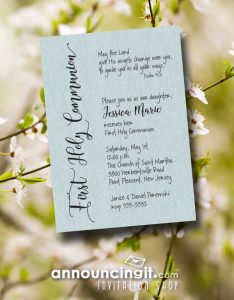 First Holy Communion
May the Lord
give His angels charge over you,
to guide you in all your ways.
Psalm 91:11
Please join us as our daughter,
Jessica Marie
receives her
First Holy Communion
Saturday, May 1st
12:00 p.m.
The Church of Saint Martha
3800 Herbertsville Road
Point Pleasant, New Jersey
Janice & Daniel
RSVP 555-5592
announcingit.com
INVITATION SHOP